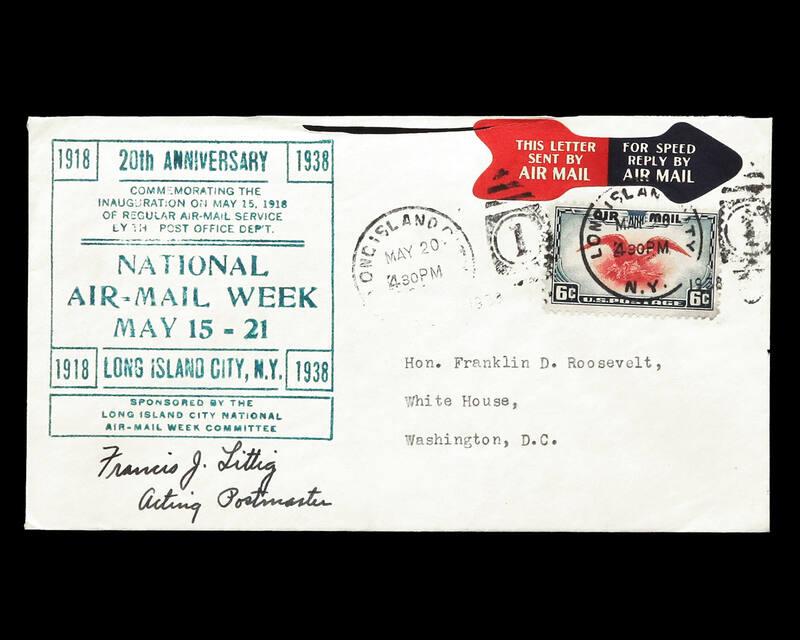 1918 20th ANNIVERSARY 1938
COMMEMORATING THE
INAUGURATION ON MAY 15, 1918
OF REGULAR AIR-MAIL SERVICE
BY TH POST OFFICE DEP'T.
NATIONAL
AIR-MAIL WEEK
MAY 15 - 21
1918 LONG ISLAND CITY, N.Y. 1938
SPONSORED BY THE
LONG ISLAND CITY NATIONAL
AIR-MAIL WEEK COMMITTEE
Francis J. Littig
Acting Postmaster
THIS LETTER
SENT BY
AIR MAIL
FOR SPEED
REPLY BY
AIR MAIL
LONG ISLAND C
MAY 20
4.30PM
1938
1
AIR MAIL
6¢ U.S. POSTAGE 6¢
LONG ISLAN ITY
MAY
4.30PM
N.Y.
1938
Hon. Franklin D. Roosevelt,
White House,
Washington, D.C.